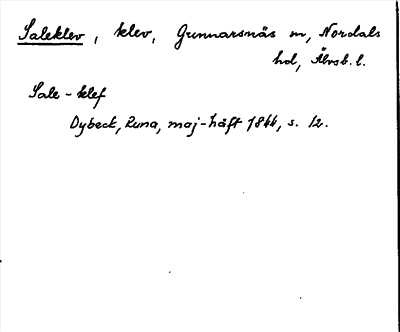 Saleklev, klev, Gunnarsnäs sn, Nordals
hd, Älvsb. l.
Sale-klef
Dybeck, Runa, maj-häft 1844, s. 12.